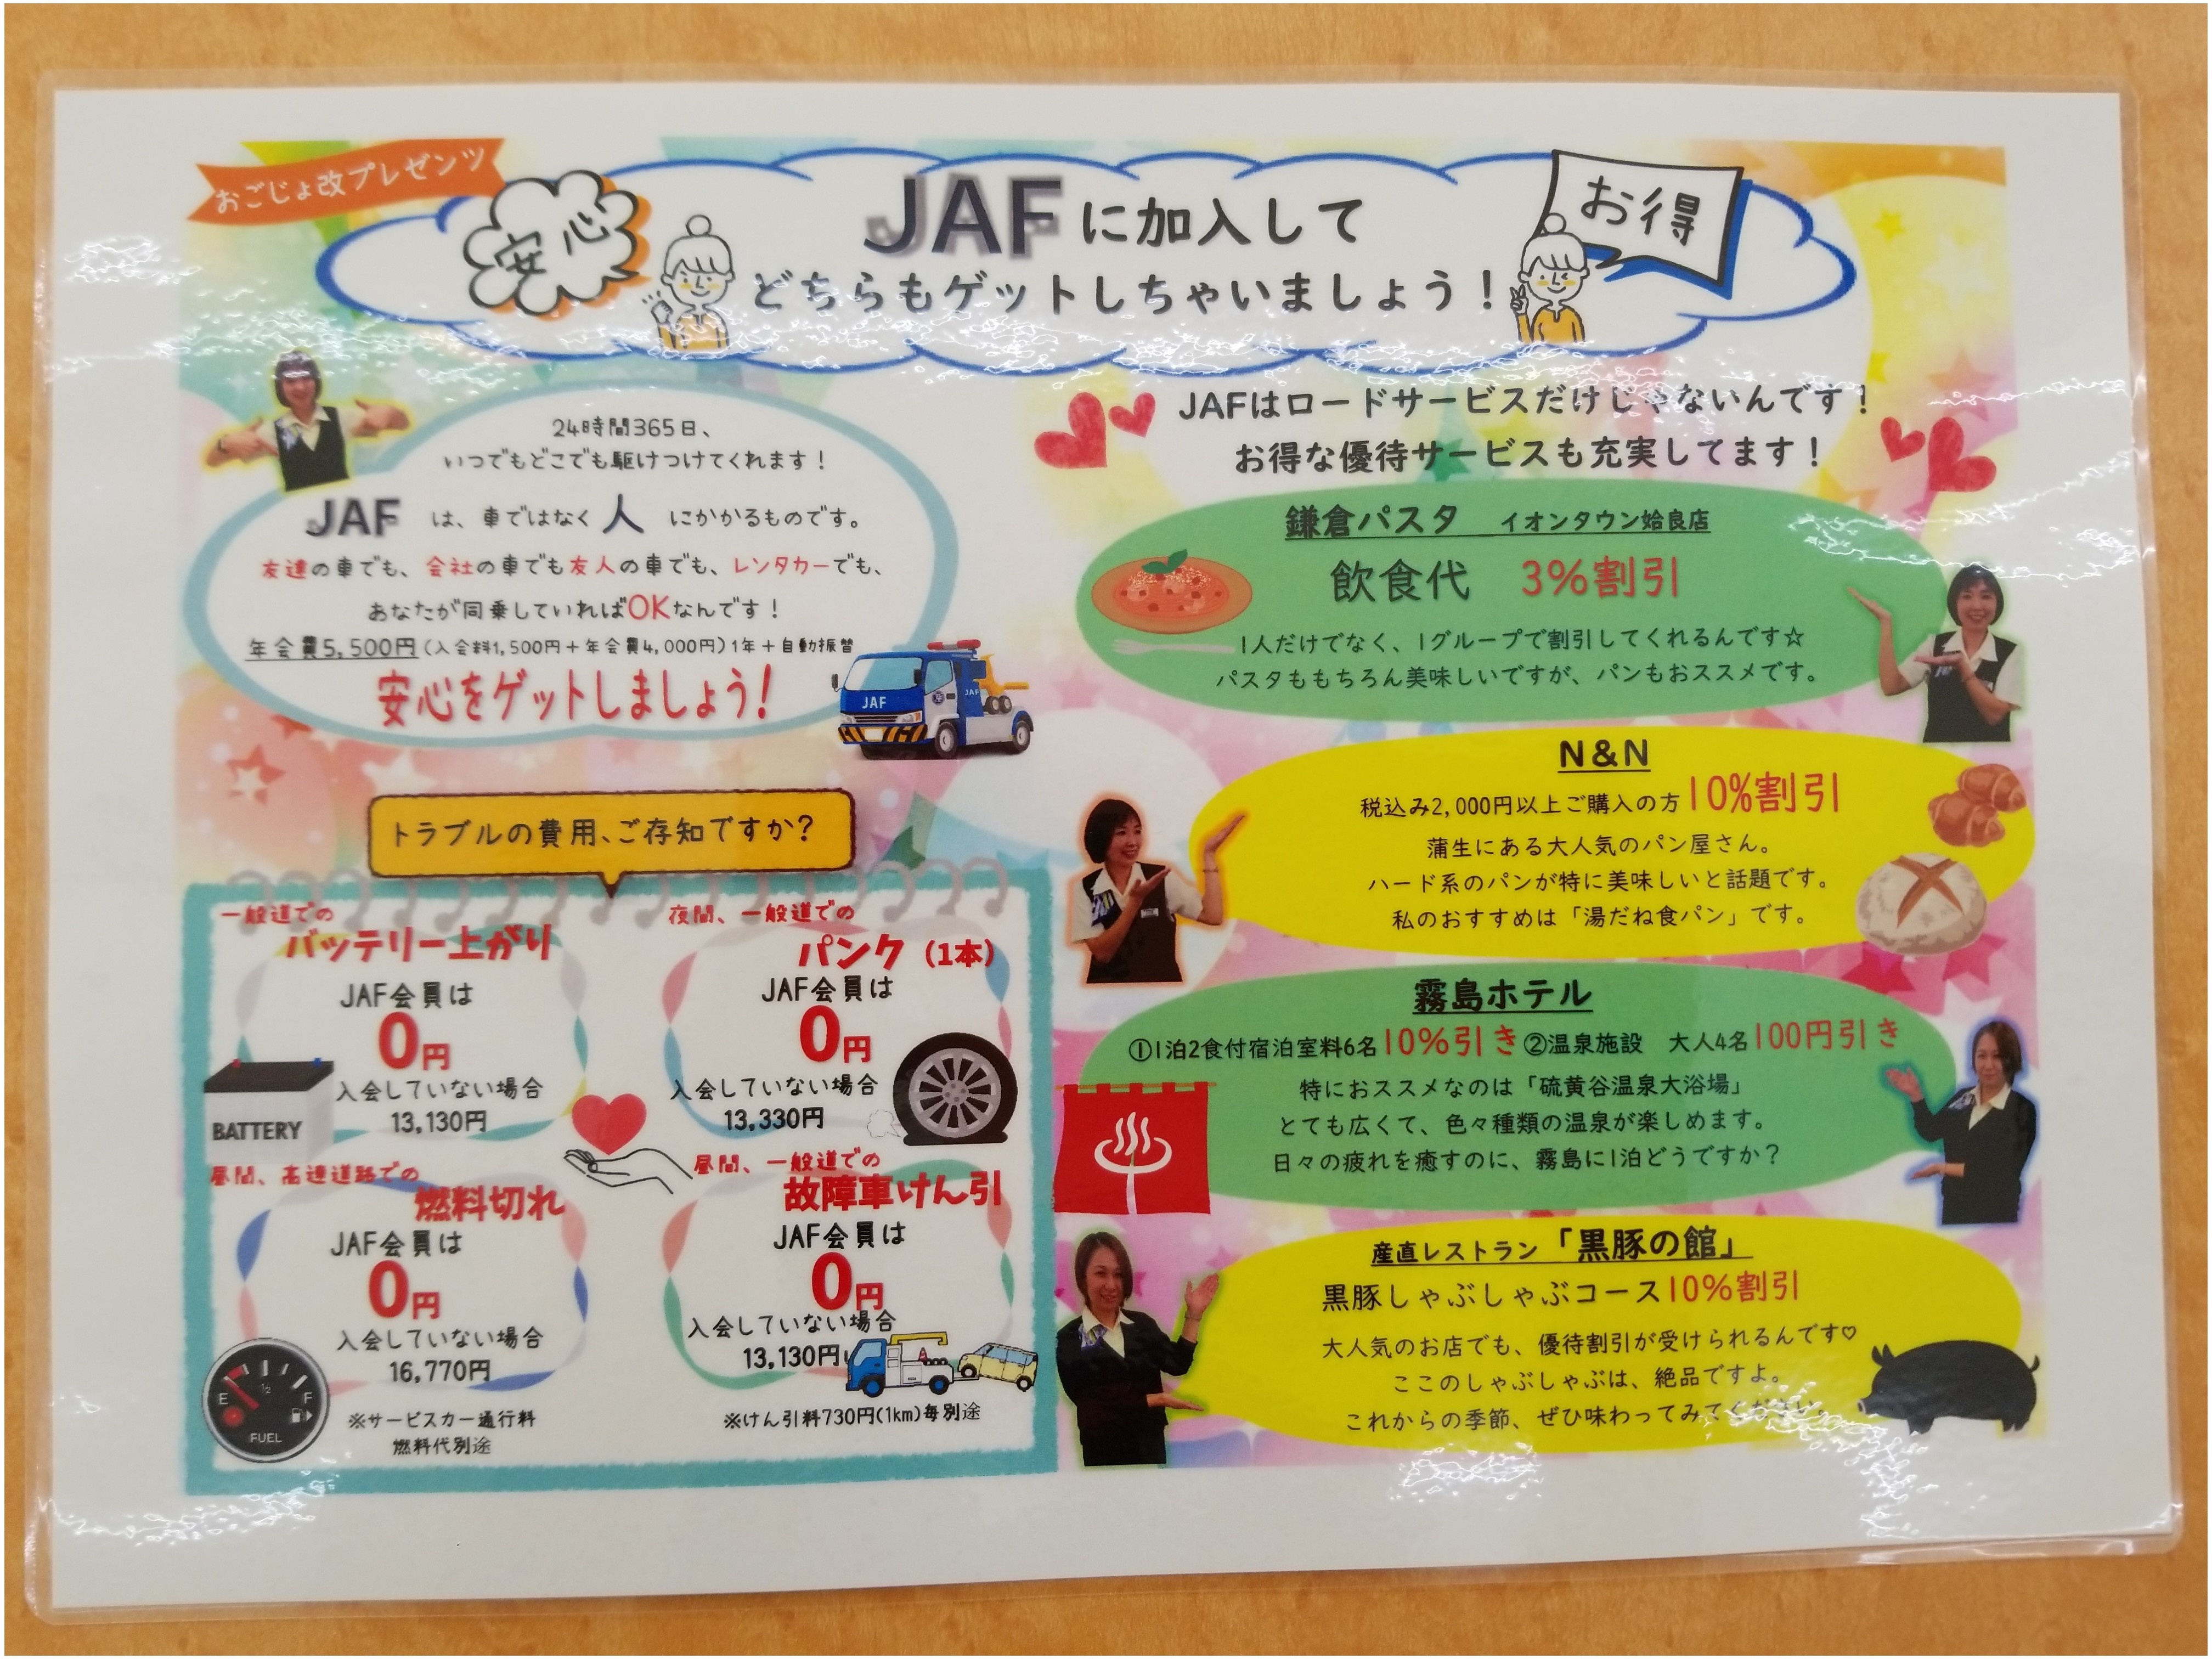 おごじょ改プレゼンツ
安心
JAFに加入して
どちらもゲットしちゃいましょう！
お得
24時間365日、
いつでもどこでも駆けつけてくれます！
JAF は、車ではなく 人 にかかるものです。
友達の車でも、会社の車でも友人の車でも、レンタカーでも、
あなたが同乗していればOKなんです！
年会費5,500円（入会料1,500円＋年会費4,000円）1年＋自動振替
安心をゲットしましょう！
JAF
JAF
トラブルの費用、ご存知ですか？
一般道での
バッテリー上がり
JAF会員は
0円
入会していない場合
13,130円
BATTERY
夜間、一般道での
パンク（1本）
JAF会員は
0円
入会していない場合
13,330円
昼間、高速道路での
燃料切れ
JAF会員は
0円
入会していない場合
16,770円
※サービスカー通行料
燃料代別途
E 1/2 F
FUEL
昼間、一般道での
故障車けん引
JAF会員は
0円
入会していない場合
13,130円
※けん引料730円(1km)毎別途
JAFはロードサービスだけじゃないんです！
お得な優待サービスも充実してます！
鎌倉パスタ イオンタウン姶良店
飲食代 3%割引
1人だけでなく、1グループで割引してくれるんです☆
パスタももちろん美味しいですが、パンもおススメです。
N＆N
税込み2,000円以上ご購入の方10%割引
蒲生にある大人気のパン屋さん。
ハード系のパンが特に美味しいと話題です。
私のおすすめは「湯だね食パン」です。
霧島ホテル
①1泊2食付宿泊室料6名10%引き②温泉施設 大人4名100円引き
特におススメなのは「硫黄谷温泉大浴場」
とても広くて、色々種類の温泉が楽しめます。
日々の疲れを癒すのに、霧島に1泊どうですか？
産直レストラン「黒豚の館」
黒豚しゃぶしゃぶコース10%割引
大人気のお店でも、優待割引が受けられるんです♡
ここのしゃぶしゃぶは、絶品ですよ。
これからの季節、ぜひ味わってみてください。